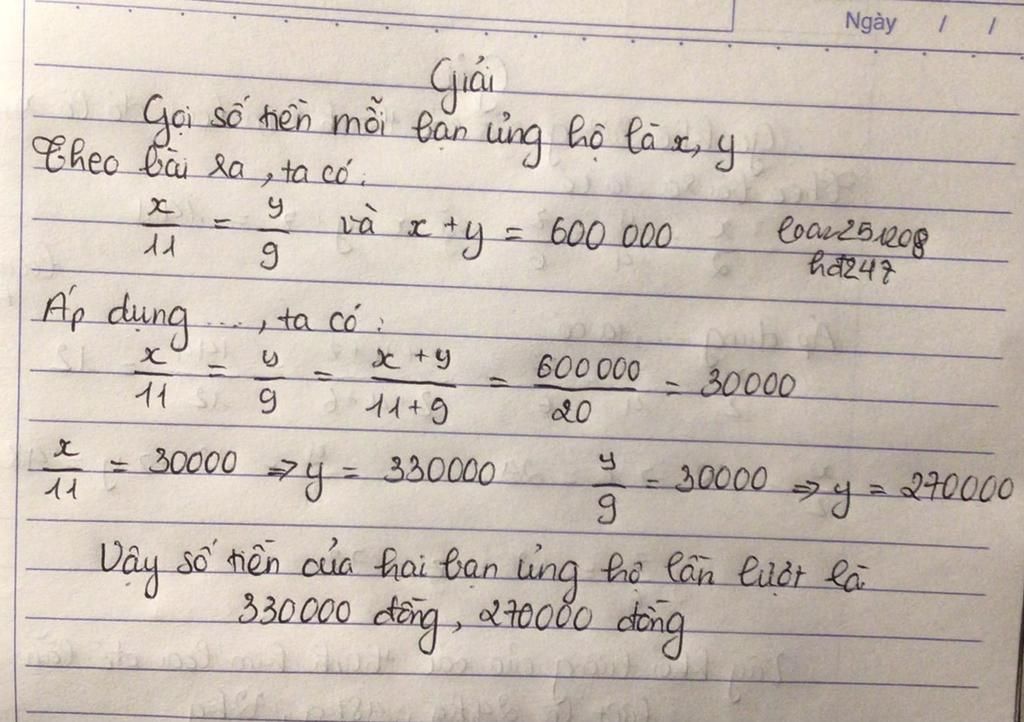 Ngày / /
Giải
Gọi số tiền mỗi bạn ủng hộ là x, y
Theo bài ra, ta có:
x/11 = y/9 và x + y = 600 000
loan251208
hđ247
Áp dụng ..., ta có:
x/11 = y/9 = x + y/11 + 9 = 600 000/20 = 30000
x/11 = 30000 => y = 330000 y/9 = 30000 => y = 270000
Vậy số tiền của hai bạn ủng hộ lần lượt là
330000 đồng, 270000 đồng